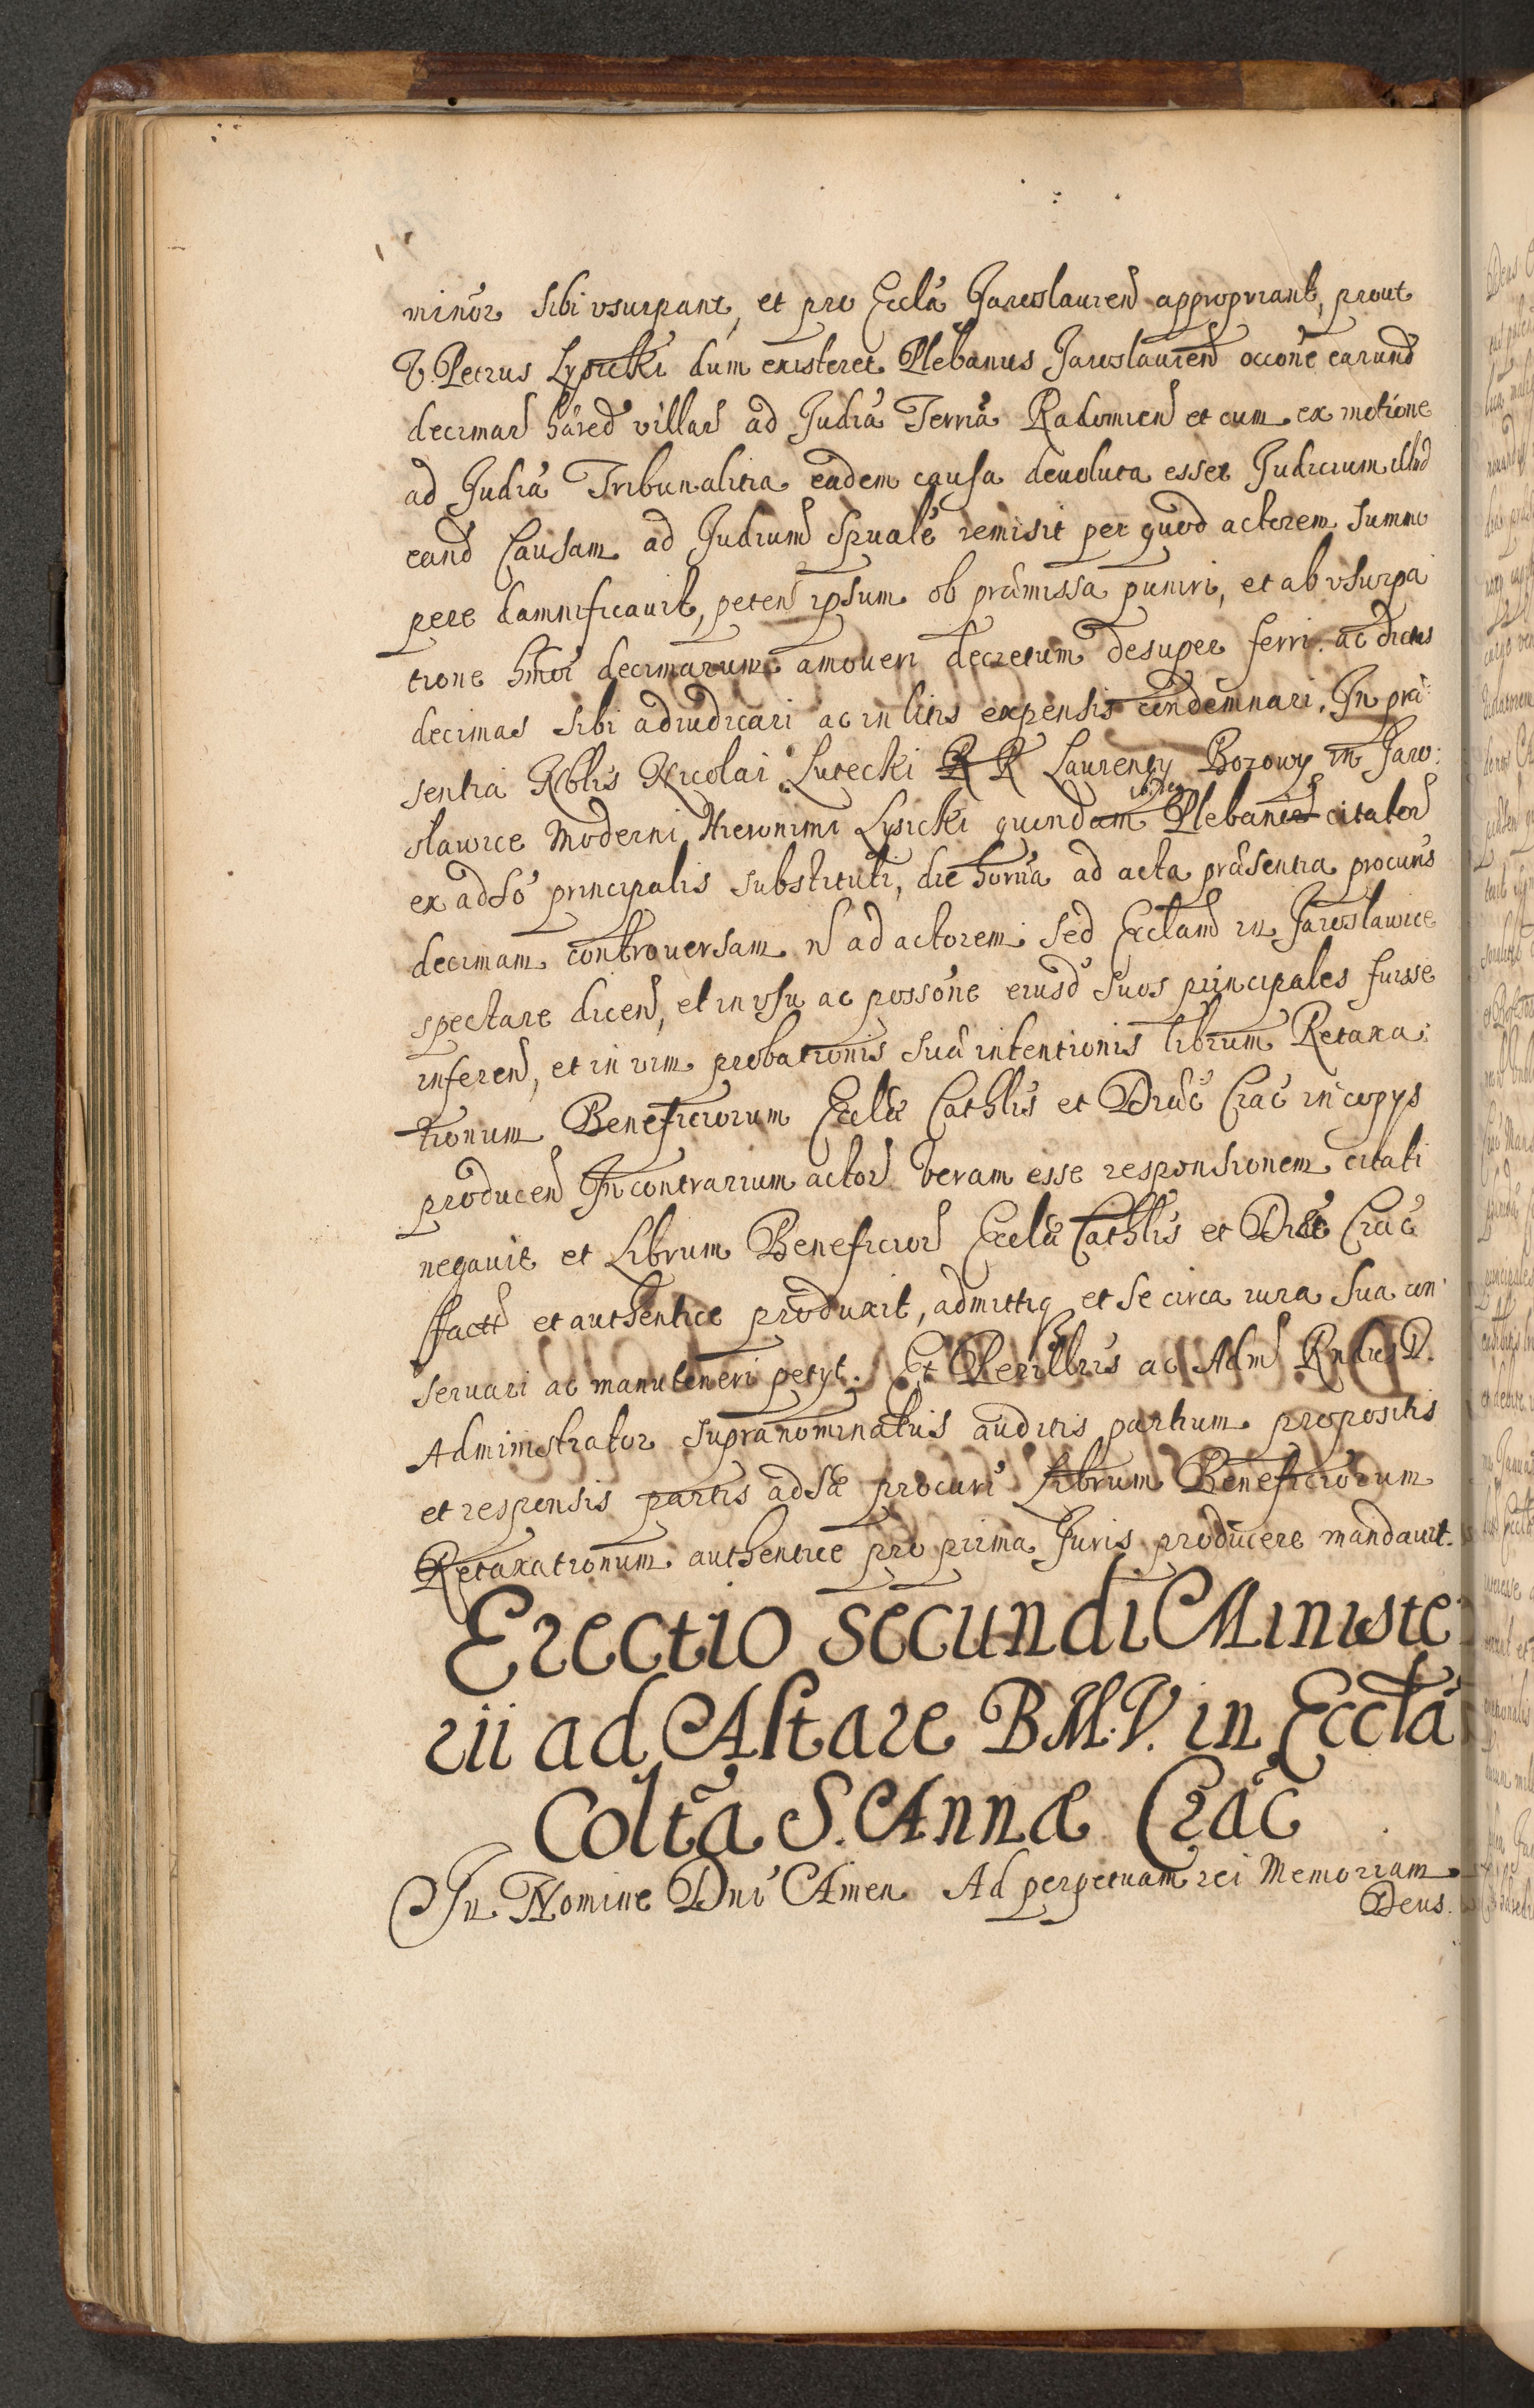 minor̃ sibi vsurpant, et pro Eccla Jaroslauien appropriant, prout
V. Petrus Lysicki dum existeret Plebanus Jaroslauien occone earund
decimar hared villar ad Judia Terria Radomien et cum ex motione
ad Judia Tribunalitia eadem causa deuoluta esset Judicium illud
eand Causam ad Judium Spuale remisit per quod actorem summo
pere damnificauit, peten ipsum ob præmissa puniri, et ab vsurpa
tione hmoi decimarum amoueri decretum desuper ferri. ac dictas
decimas sibi adiudicari ac in litis expensis condemnari. In præ:
sentia Nblis Nicolai Lutecki R R Laurenty Bozowy in Jaro:
slawice Moderni, Hieronimi Lysicki quondam ibidem Plebanor citator
ex adso principalis substituti, die horna ad acta præsentia procuris
decimam controuersam n ad actorem sed Ecclam in Jaroslawice
spectare dicen, et in vsu ac possone eiusd suos principales fuisse
inferen, et in vim probationis suæ intentionis librum Retaxa:
tionum Beneficiorum Eccla Cathlis et Diæc Crac in copys
producen In contrarium actor veram esse responsionem citati
negauit et Librum Beneficior Eccla Cathlis et Diæc Crac
facti et authentice produxit, admittiq et se circa iura sua con:
seruari ac manuteneri petyt. Et Perillris ac Adm Rndus D.
Administrator supranominatus auditis partium propositis
et responsis partis adsæ procuri Librum Beneficiorum
Retaxationum authentice pro prima Juris producere mandauit.
Erectio secundi Ministe
rii ad Altare B.M.V. in Eccla
Colta S. Annæ Crac
In Nomine Dni Amen Ad perpetuam rei Memoriam
Deus.